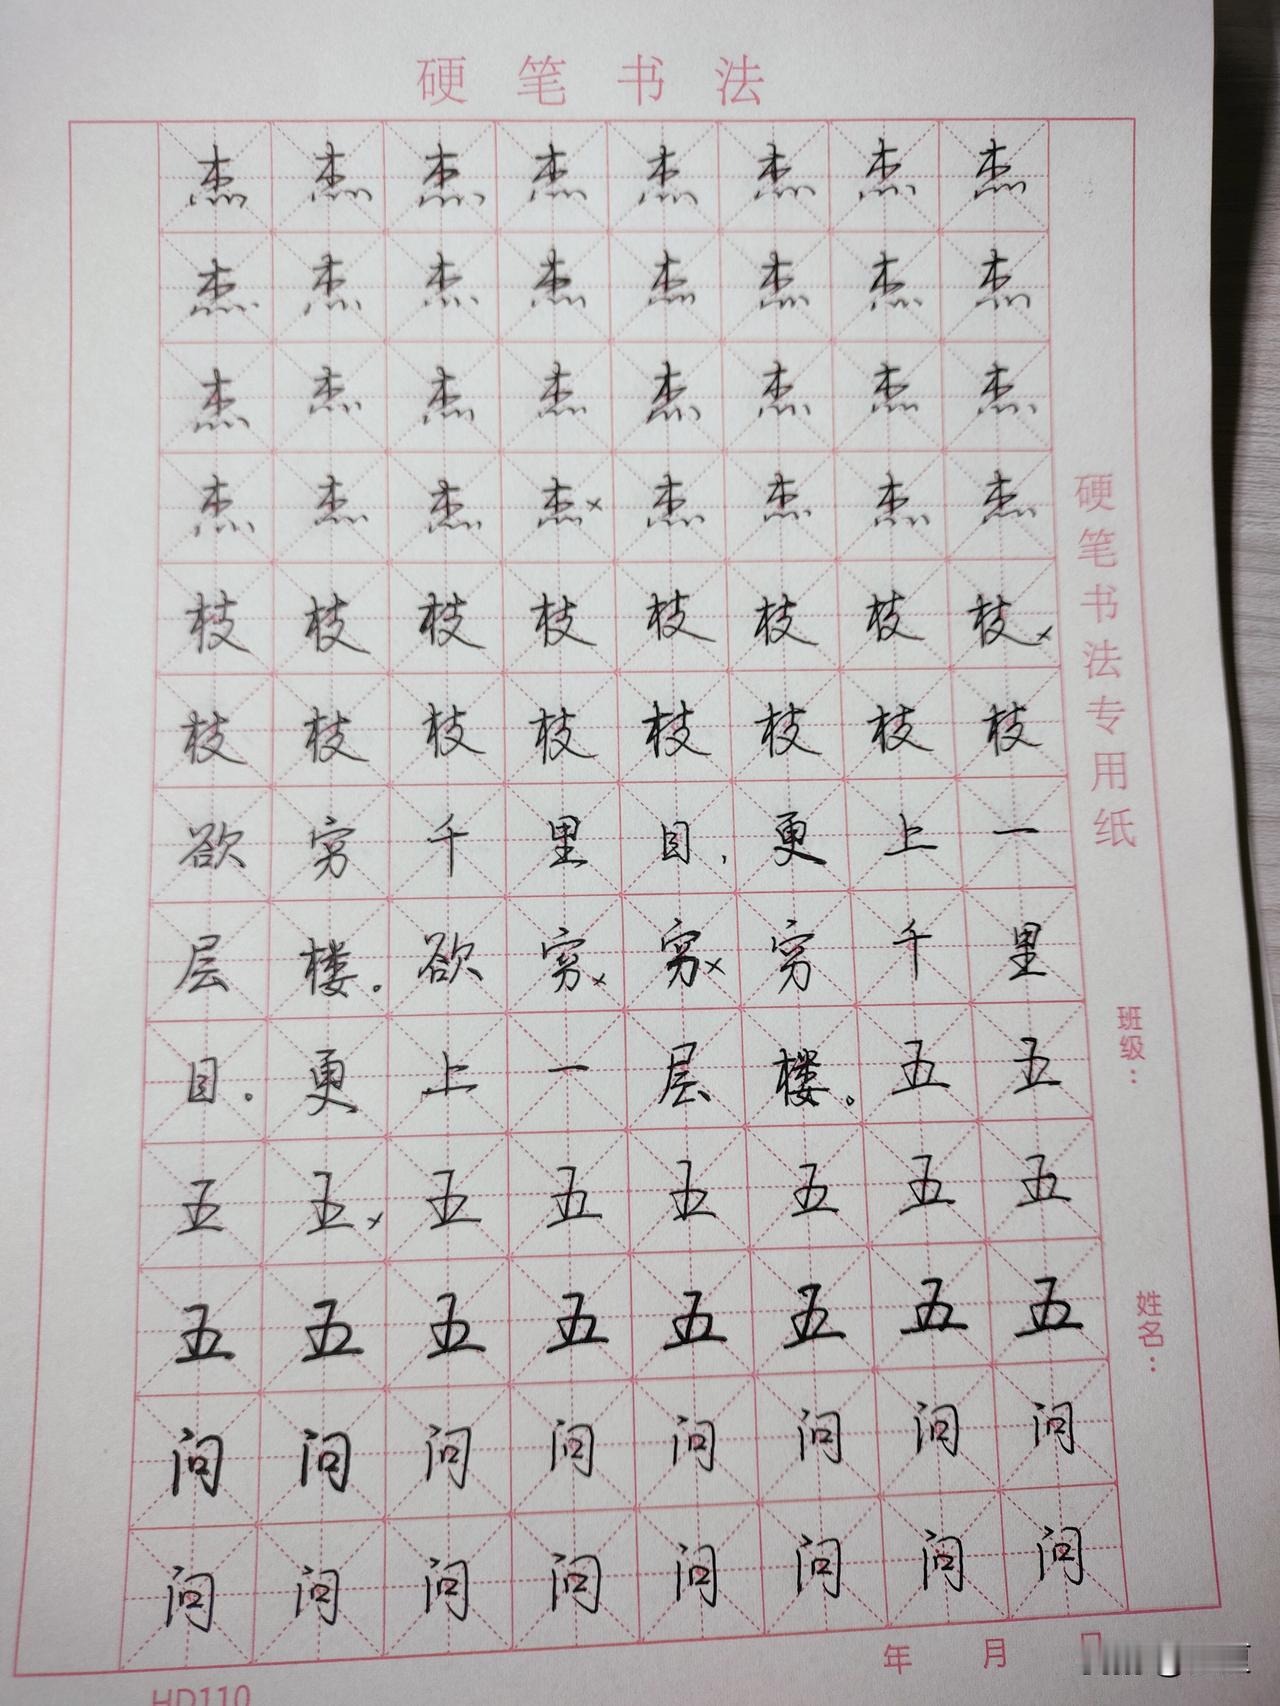 硬笔书法
杰杰杰杰杰杰杰杰
杰杰杰杰杰杰杰杰
杰杰杰杰杰杰杰杰
杰杰杰杰×杰杰杰杰
枝枝枝枝枝枝枝枝×
枝枝枝枝枝枝枝枝
欲穷千里目,更上一
层楼。欲穷×穷×穷千里
目。更上一层楼。五五
五五×五五五五五五
五五五五五五五五
问问问问问问问问
问问问问问问问问
硬笔书法专用纸
班级：
姓名：
年 月
HD110